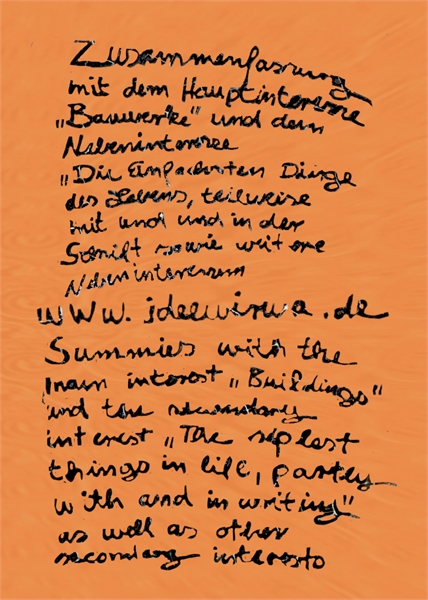 Zusammenfassung
mit dem Hauptinteresse
„Bauwerke" und dem
Nebeninteresse
„Die Einfachsten Dinge
des Lebens, teilweise
mit und und in der
Schrift sowie weitere
Nebeninteressen
www.ideewirwa.de
Summies with the
main interest „Buildings"
und the secondary
interest „The siplest
things in life, partly
with and in writing"
as well as other
secondary interests